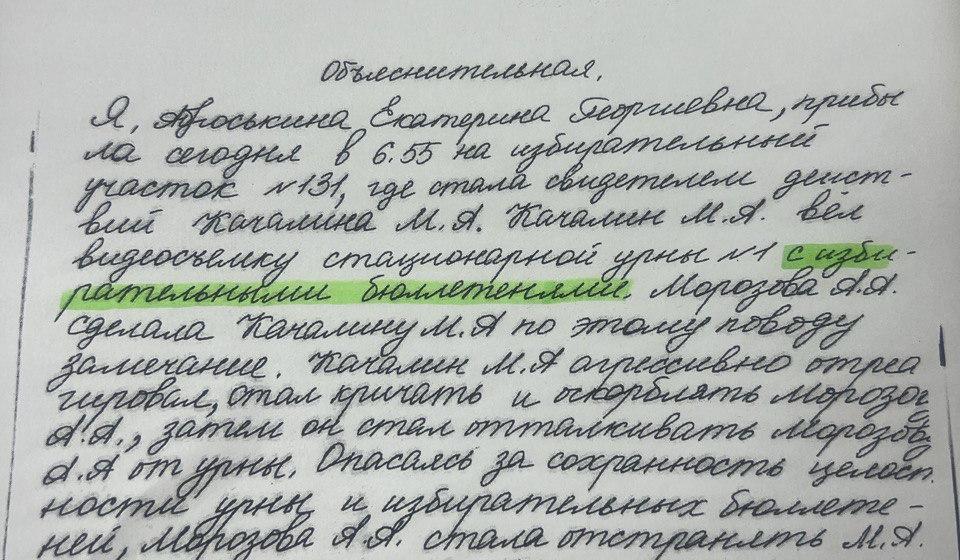 Объяснительная.
Я, Проськина Екатерина Георгиевна, прибы
ла сегодня в 6.55 на избирательный
участок №131, где стала свидетелем дейст-
вий Качалина М.А. Качалин М.А. вёл
видеосъемку стационарной урны №1 с изби-
рательными бюллетенями. Морозова А.А.
сделала Качалину М.А по этому поводу
замечание. Качалин М.А агрессивно отреа
гировал, стал кричать и оскорблять Морозову
А.А., затем он стал отталкивать Морозову
А.А от урны. Опасаясь за сохранность целост
ности урны и избирательных бюллете-
ней, Морозова А.А. стала отстранять М.А.